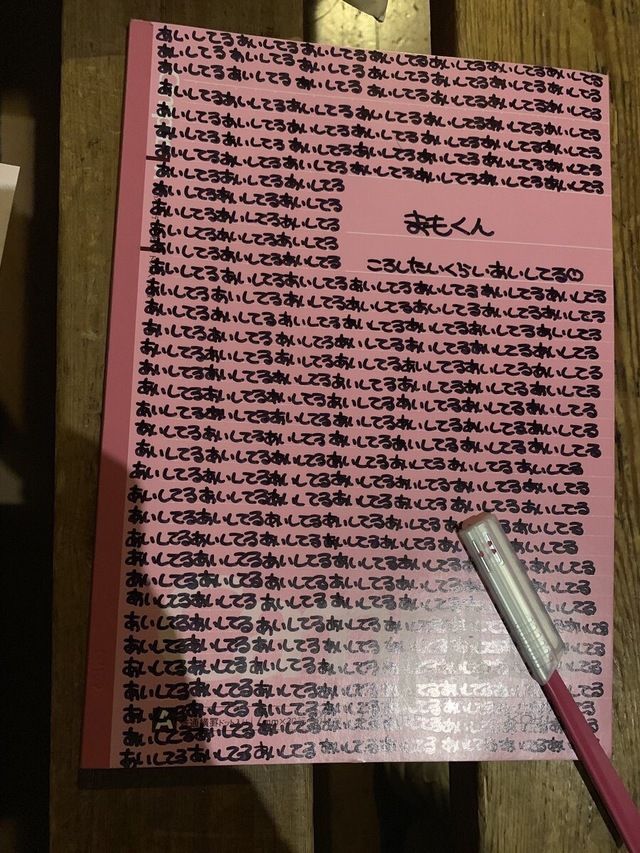 あいしてるあいしてるあいしてるあいしてるあいしてるあいしてるあいしてる
あいしてるあいしてるあいしてるあいしてるあいしてるあいしてるあいしてる
あいしてるあいしてるあいしてるあいしてるあいしてるあいしてるあいしてる
あいしてるあいしてるあいしてるあいしてるあいしてるあいしてるあいしてる
あいしてるあいしてるあいしてるあいしてるあいしてるあいしてるあいしてる
あいしてるあいしてるあいしてるあいしてるあいしてるあいしてるあいしてる
あいしてるあいしてるあいしてるあいしてるあいしてるあいしてるあいしてる
あいしてるあいしてるあいしてる
あいしてるあいしてるあいしてる
あいしてるあいしてるあいしてる
あいしてるあいしてるあいしてる
あいしてるあいしてるあいしてる
まもくん
ころしたいくらいあいしてる
あいしてるあいしてるあいしてるあいしてるあいしてるあいしてるあいしてる
あいしてるあいしてるあいしてるあいしてるあいしてるあいしてるあいしてる
あいしてるあいしてるあいしてるあいしてるあいしてるあいしてるあいしてる
あいしてるあいしてるあいしてるあいしてるあいしてるあいしてるあいしてる
あいしてるあいしてるあいしてるあいしてるあいしてるあいしてるあいしてる
あいしてるあいしてるあいしてるあいしてるあいしてるあいしてるあいしてる
あいしてるあいしてるあいしてるあいしてるあいしてるあいしてるあいしてる
あいしてるあいしてるあいしてるあいしてるあいしてるあいしてるあいしてる
あいしてるあいしてるあいしてるあいしてるあいしてるあいしてるあいしてる
あいしてるあいしてるあいしてるあいしてるあいしてるあいしてるあいしてる
あいしてるあいしてるあいしてるあいしてるあいしてるあいしてるあいしてる
あいしてるあいしてるあいしてるあいしてるあいしてるあいしてるあいしてる
あいしてるあいしてるあいしてるあいしてるあいしてるあいしてる
あいしてるあいしてるあいしてるあいしてるあいしてるあいしてる
あいしてるあいしてるあいしてるあいしてるあいしてるあいしてる
あいしてるあいしてるあいしてるあいしてるあいしてるあいしてる
あいしてるあいしてるあいしてるあいしてるあいしてるあいしてる
あいしてるあいしてるあいしてるあいしてるあいしてるあいしてる
あいしてるあいしてるあいしてるあいしてるあいしてるあいしてる
あいしてるあいしてるあいしてるあいしてるあいしてるあいしてる
あいしてるあいしてるあいしてるあいしてるあいしてるあいしてる
あいしてるあいしてるあいしてるあいしてるあいしてる
あいしてるあいしてるあいしてるあいしてるあいしてる
あいしてるあいしてるあいしてるあいしてるあいしてる